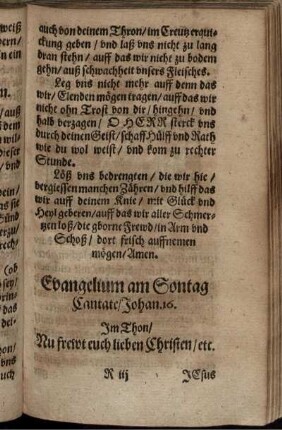 auch von deinem Thron/ im Creutz erquickung geben/ vnd laß vns nicht zu lang
dran stehn/ auff das wir nicht zu bodem
gehn/ auß schwachheit vnsers Fleisches.
Leg vns nicht mehr auff denn das
wir/ Elenden mögen tragen/ auff das wir
nicht ohn Trost von dir/ hingehn/ vnd
halb verzagen/ O HERR sterck vns
durch deinen Geist/ schaff Hülff vnd Rath
wie du wol weist/ vnd kom zu rechter
Stunde.
Löß vns bedrengten/ die wir hie/
vergiessen manchen Zähren/ vnd hilff das
wir auff deinem Knie/ mit Glück vnd
Heyl geberen/ auff das wir aller Schmertzen loß/ die gborne Frewd/ in Arm vnd
Schoß/ dort frisch auffnemen
mögen/ Amen.
Evangelium am Sontag
Cantate/ Johan. 16.
Im Thon/
Nu frewt euch lieben Christen/ etc.
R iij
JEsus